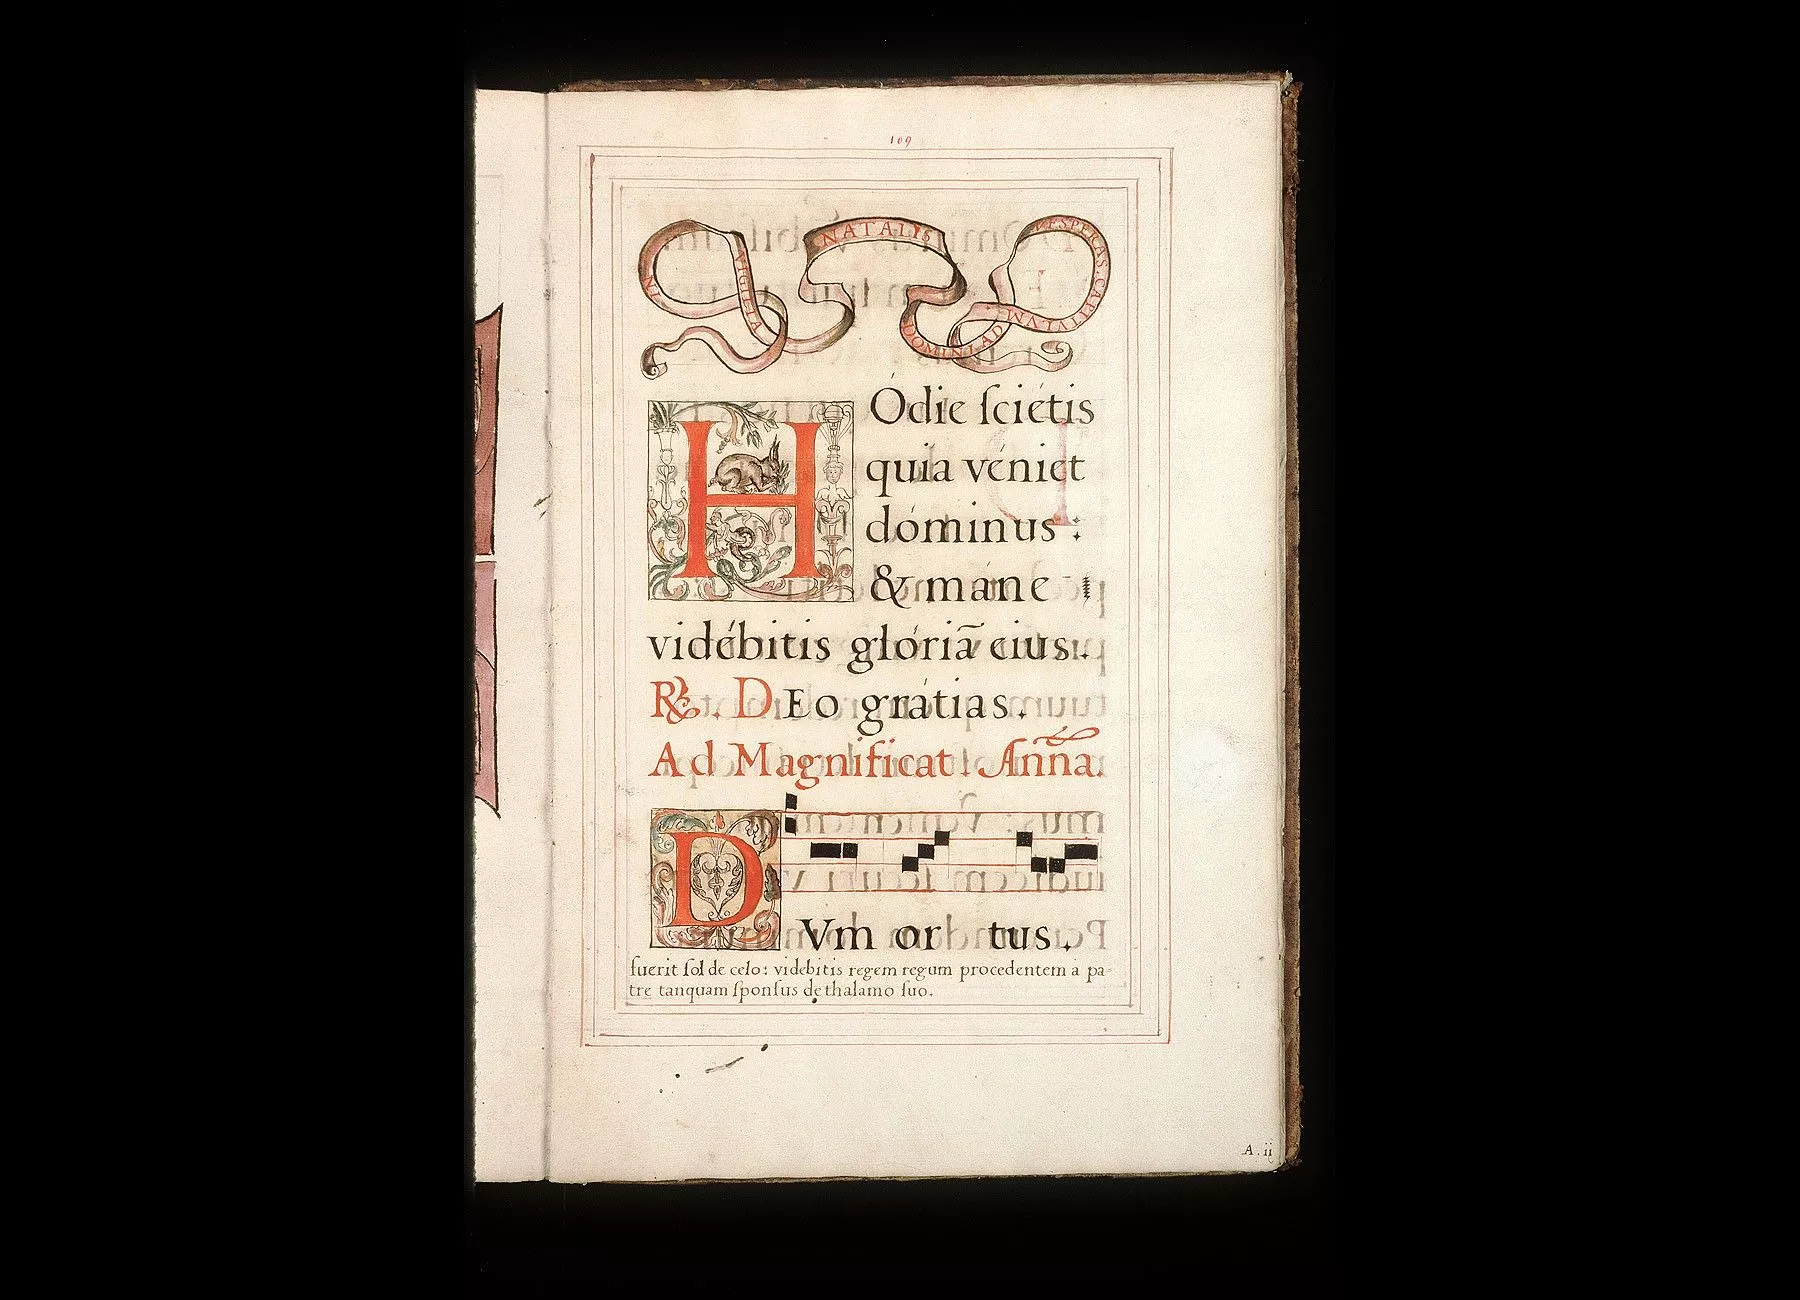 109
IN VIGILIA NATALIS DOMINI. AD VESPERAS. CAPITVLVM
HÓdie ſciétis
quia véniet
dóminus :
& máne
vidébitis glóriā eius.
℟. DEo grátias.
Ad Magnificat. Añña.
DVm or tus.
fuerit ſol de celo : videbitis regem regum procedentem a pa-
tre tanquam ſponſus de thalamo ſuo.
A . ii